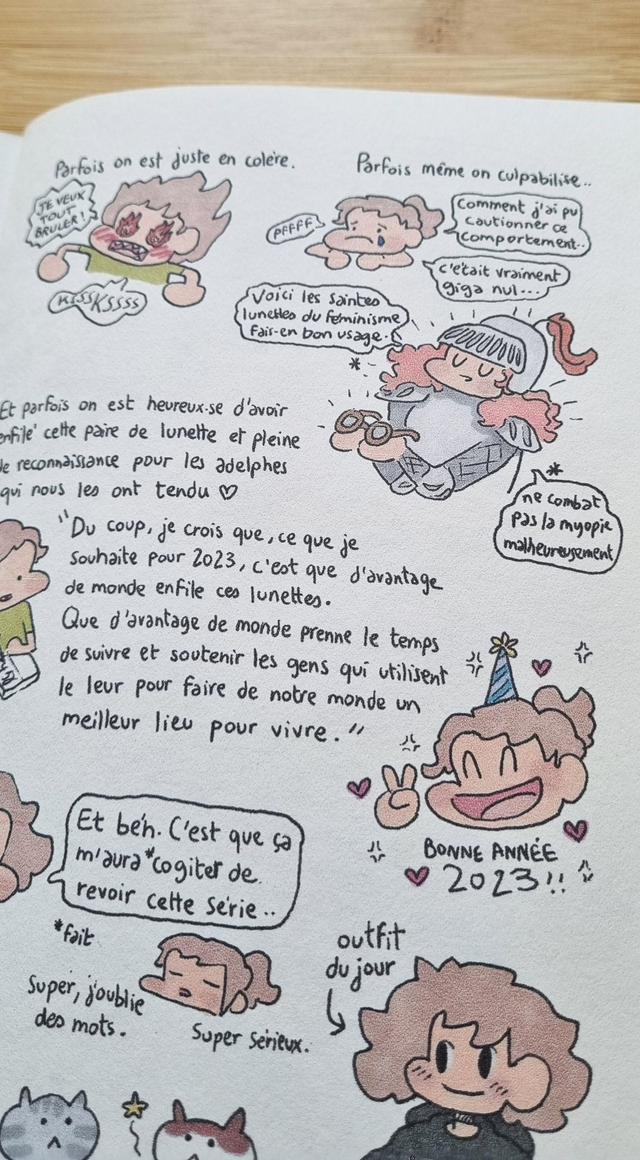 Parfois on est juste en colère.
JE VEUX
TOUT
BRULER!
KSSSKSSSS
Parfois même on culpabilise..
PFFFF
Comment j'ai pu
cautionner ce
comportement..
c'était vraiment
giga nul...
Voici les saintes
lunettes du féminisme
Fais-en bon usage.
*
Et parfois on est heureux·se d'avoir
enfilé cette paire de lunette et pleine
de reconnaissance pour les adelphes
qui nous les ont tendu ♡
*
ne combat
pas la myopie
malheureusement
"Du coup, je crois que, ce que je
souhaite pour 2023, c'est que d'avantage
de monde enfile ces lunettes.
Que d'avantage de monde prenne le temps
de suivre et soutenir les gens qui utilisent
le leur pour faire de notre monde un
meilleur lieu pour vivre."
BONNE ANNÉE
2023!!
Et beh. C'est que ça
m'aura *cogiter de
revoir cette série..
*fait
Super, j'oublie
des mots.
Super sérieux.
outfit
du jour